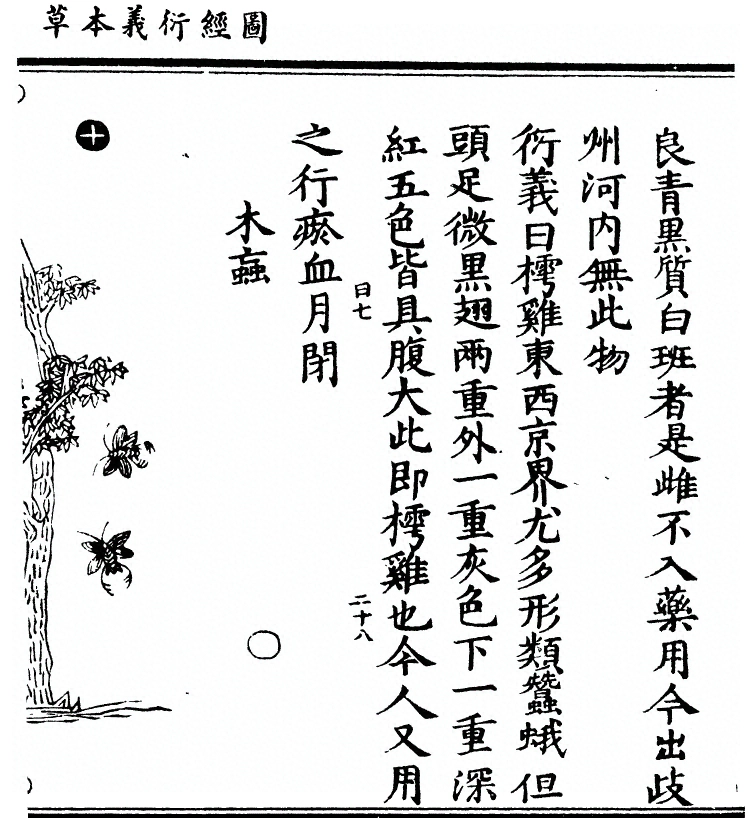 圖經衍義本草
良青黑質白班者是雌不入藥用今出歧
州河内無此物
衍義曰樗雞東西京界尤多形類蠶蛾但
頭足微黑翅兩重外一重灰色下一重深
紅五色皆具腹大此即樗雞也今人又用
曰七
二十八
之行瘀血月閉
木蝱